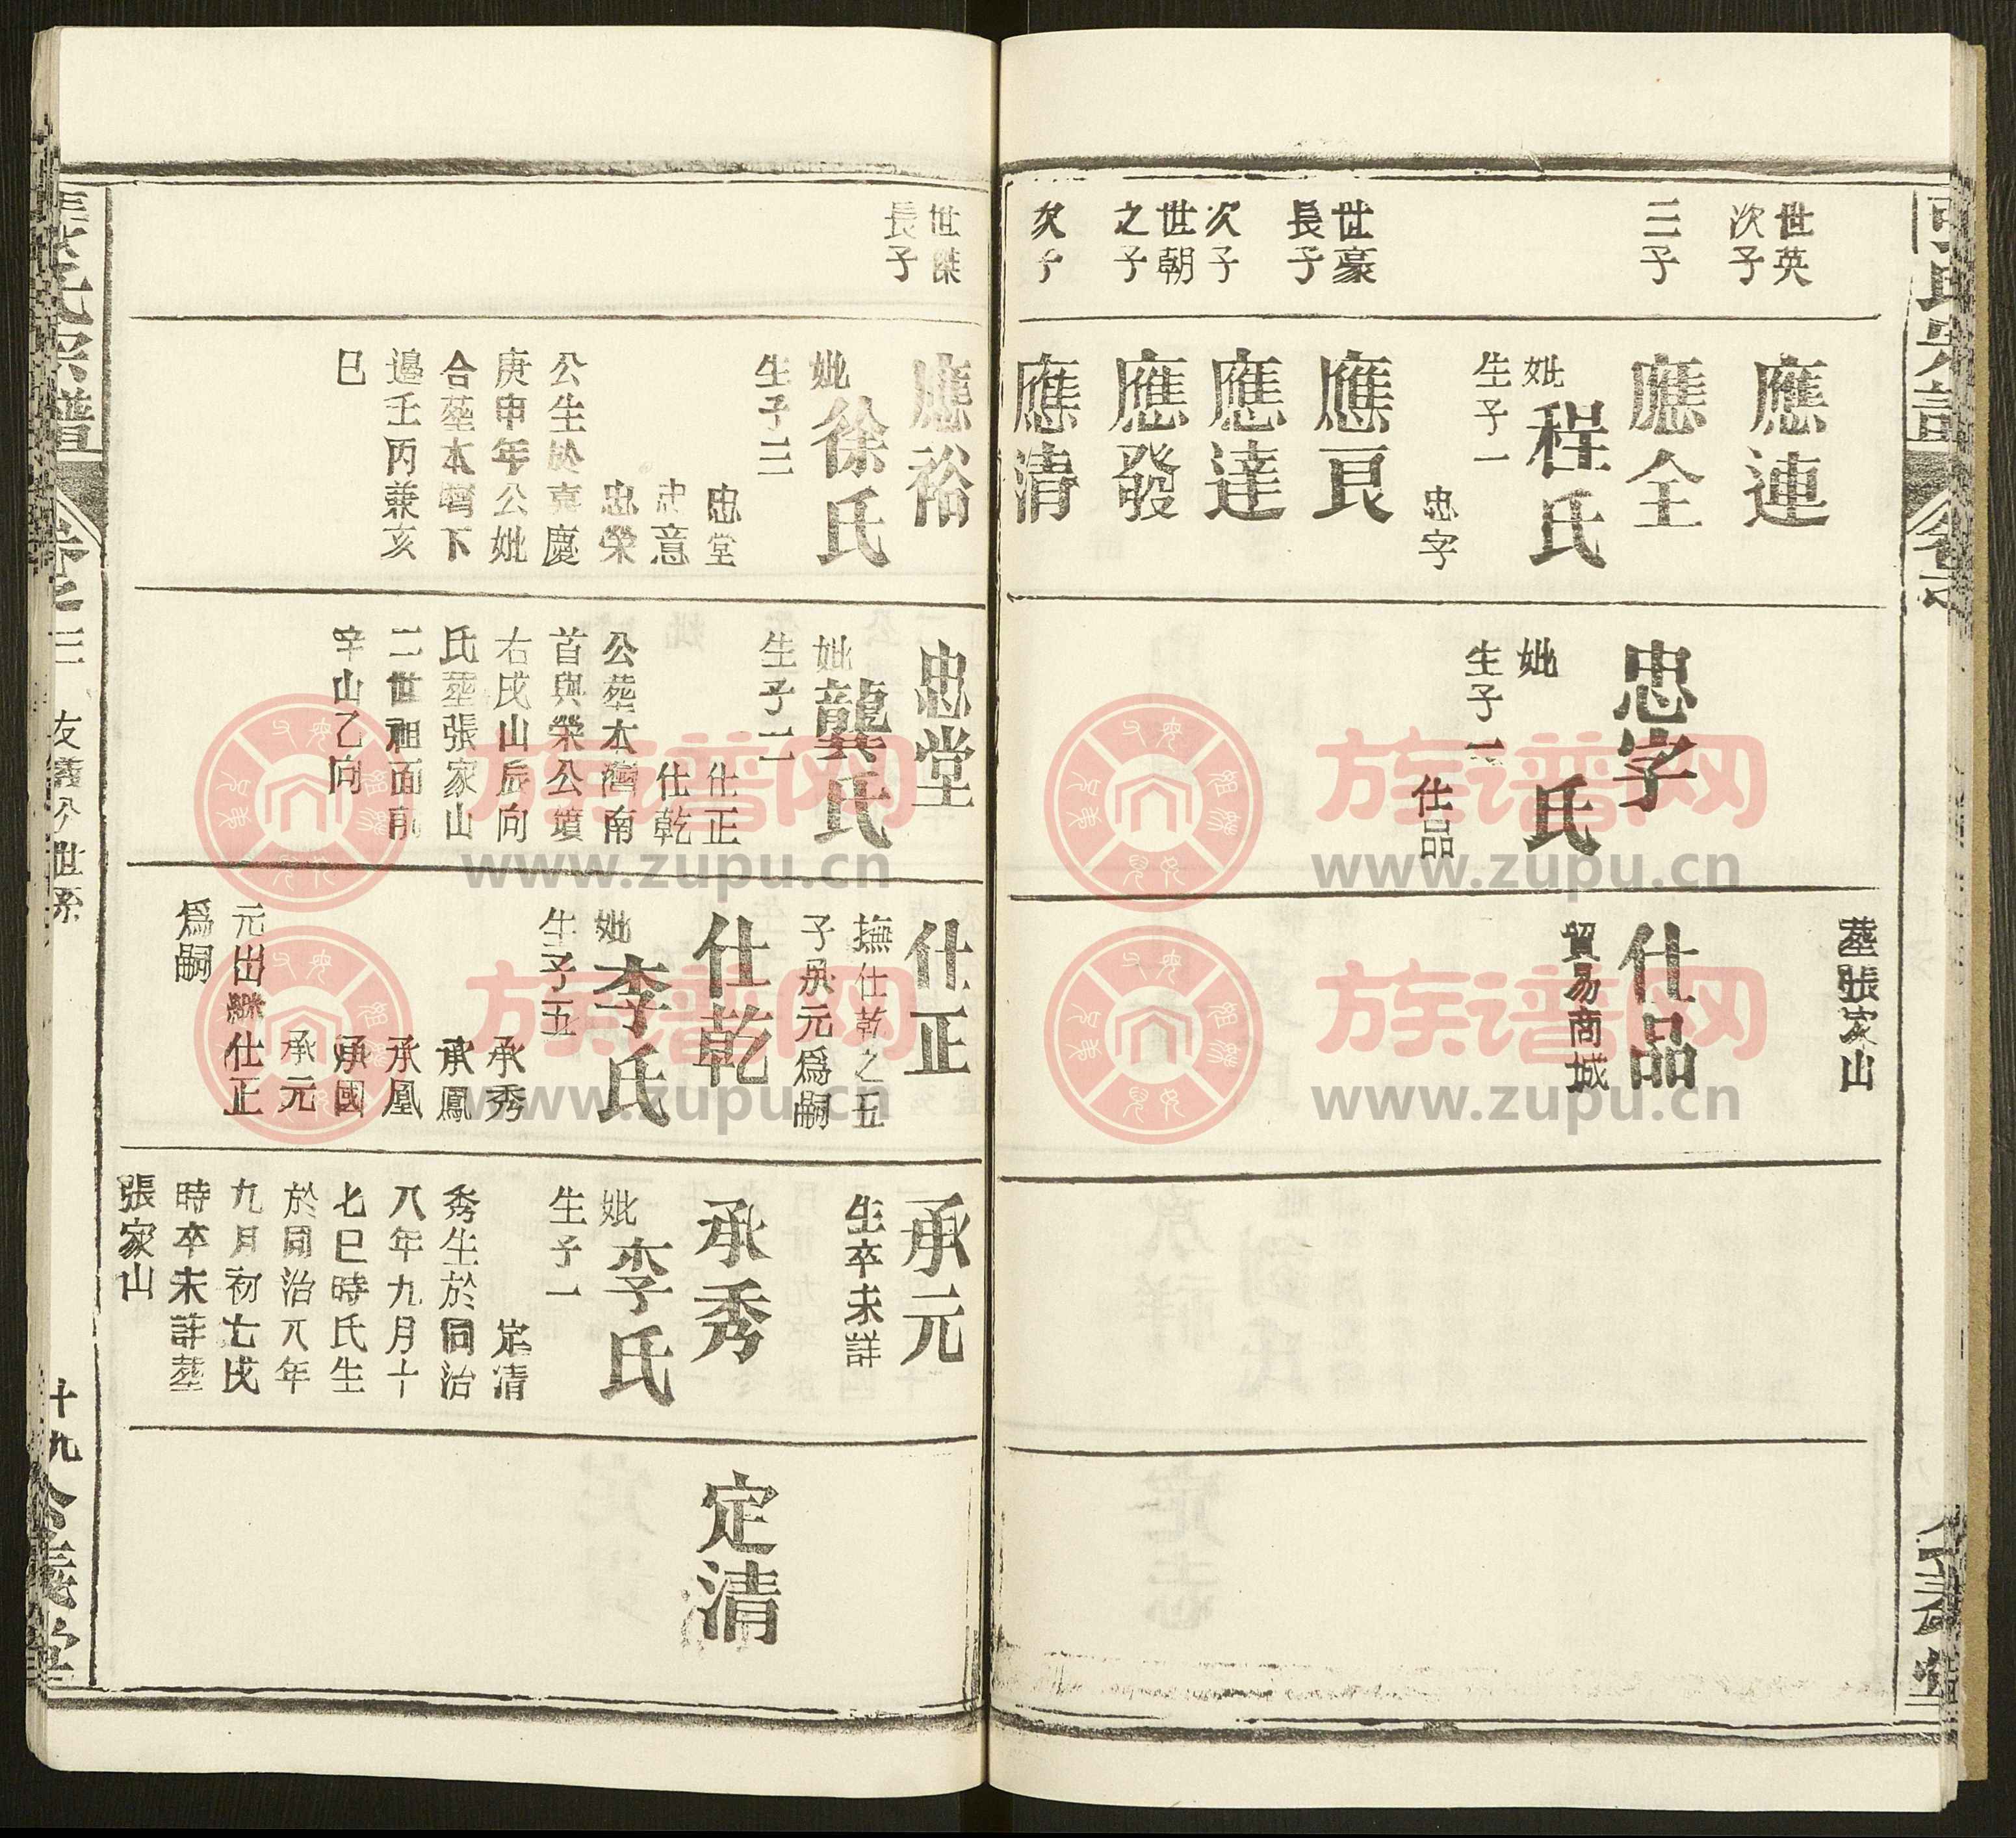 世英
次子
三子
世豪
長子
次子
世朝
之子
次子
應連
應全
妣程氏
生子一
忠字
應良
應達
應發
應清
忠字
妣 氏
生子一
仕品
塟張家山
仕品
貿易商城
世傑
長子
應裕
妣徐氏
生子三
忠堂
忠意
忠榮
公生於嘉慶
庚申年公妣
合塟本灣下
邉壬丙兼亥
巳
忠堂
妣龔氏
生子二
仕正
仕乾
公塟本灣南
首與榮公墳
右戌山辰向
氏塟張家山
二世祖面前
辛山乙向
仕正
撫仕乾之五
子承元爲嗣
仕乾
妣李氏
生子五
承秀
承鳳
承凰
承國
承元
元出繼仕正
爲嗣
承元
生卒未詳
承秀
妣李氏
生子一
定清
秀生於同治
八年九月十
七巳時氏生
於同治八年
九月初七戌
時卒未詳塟
張家山
定清
張氏宗譜
卷三
友 公世系
十九
合義堂
族谱网
www.zupu.cn
族谱网
www.zupu.cn
族谱网
www.zupu.cn
族谱网
www.zupu.cn